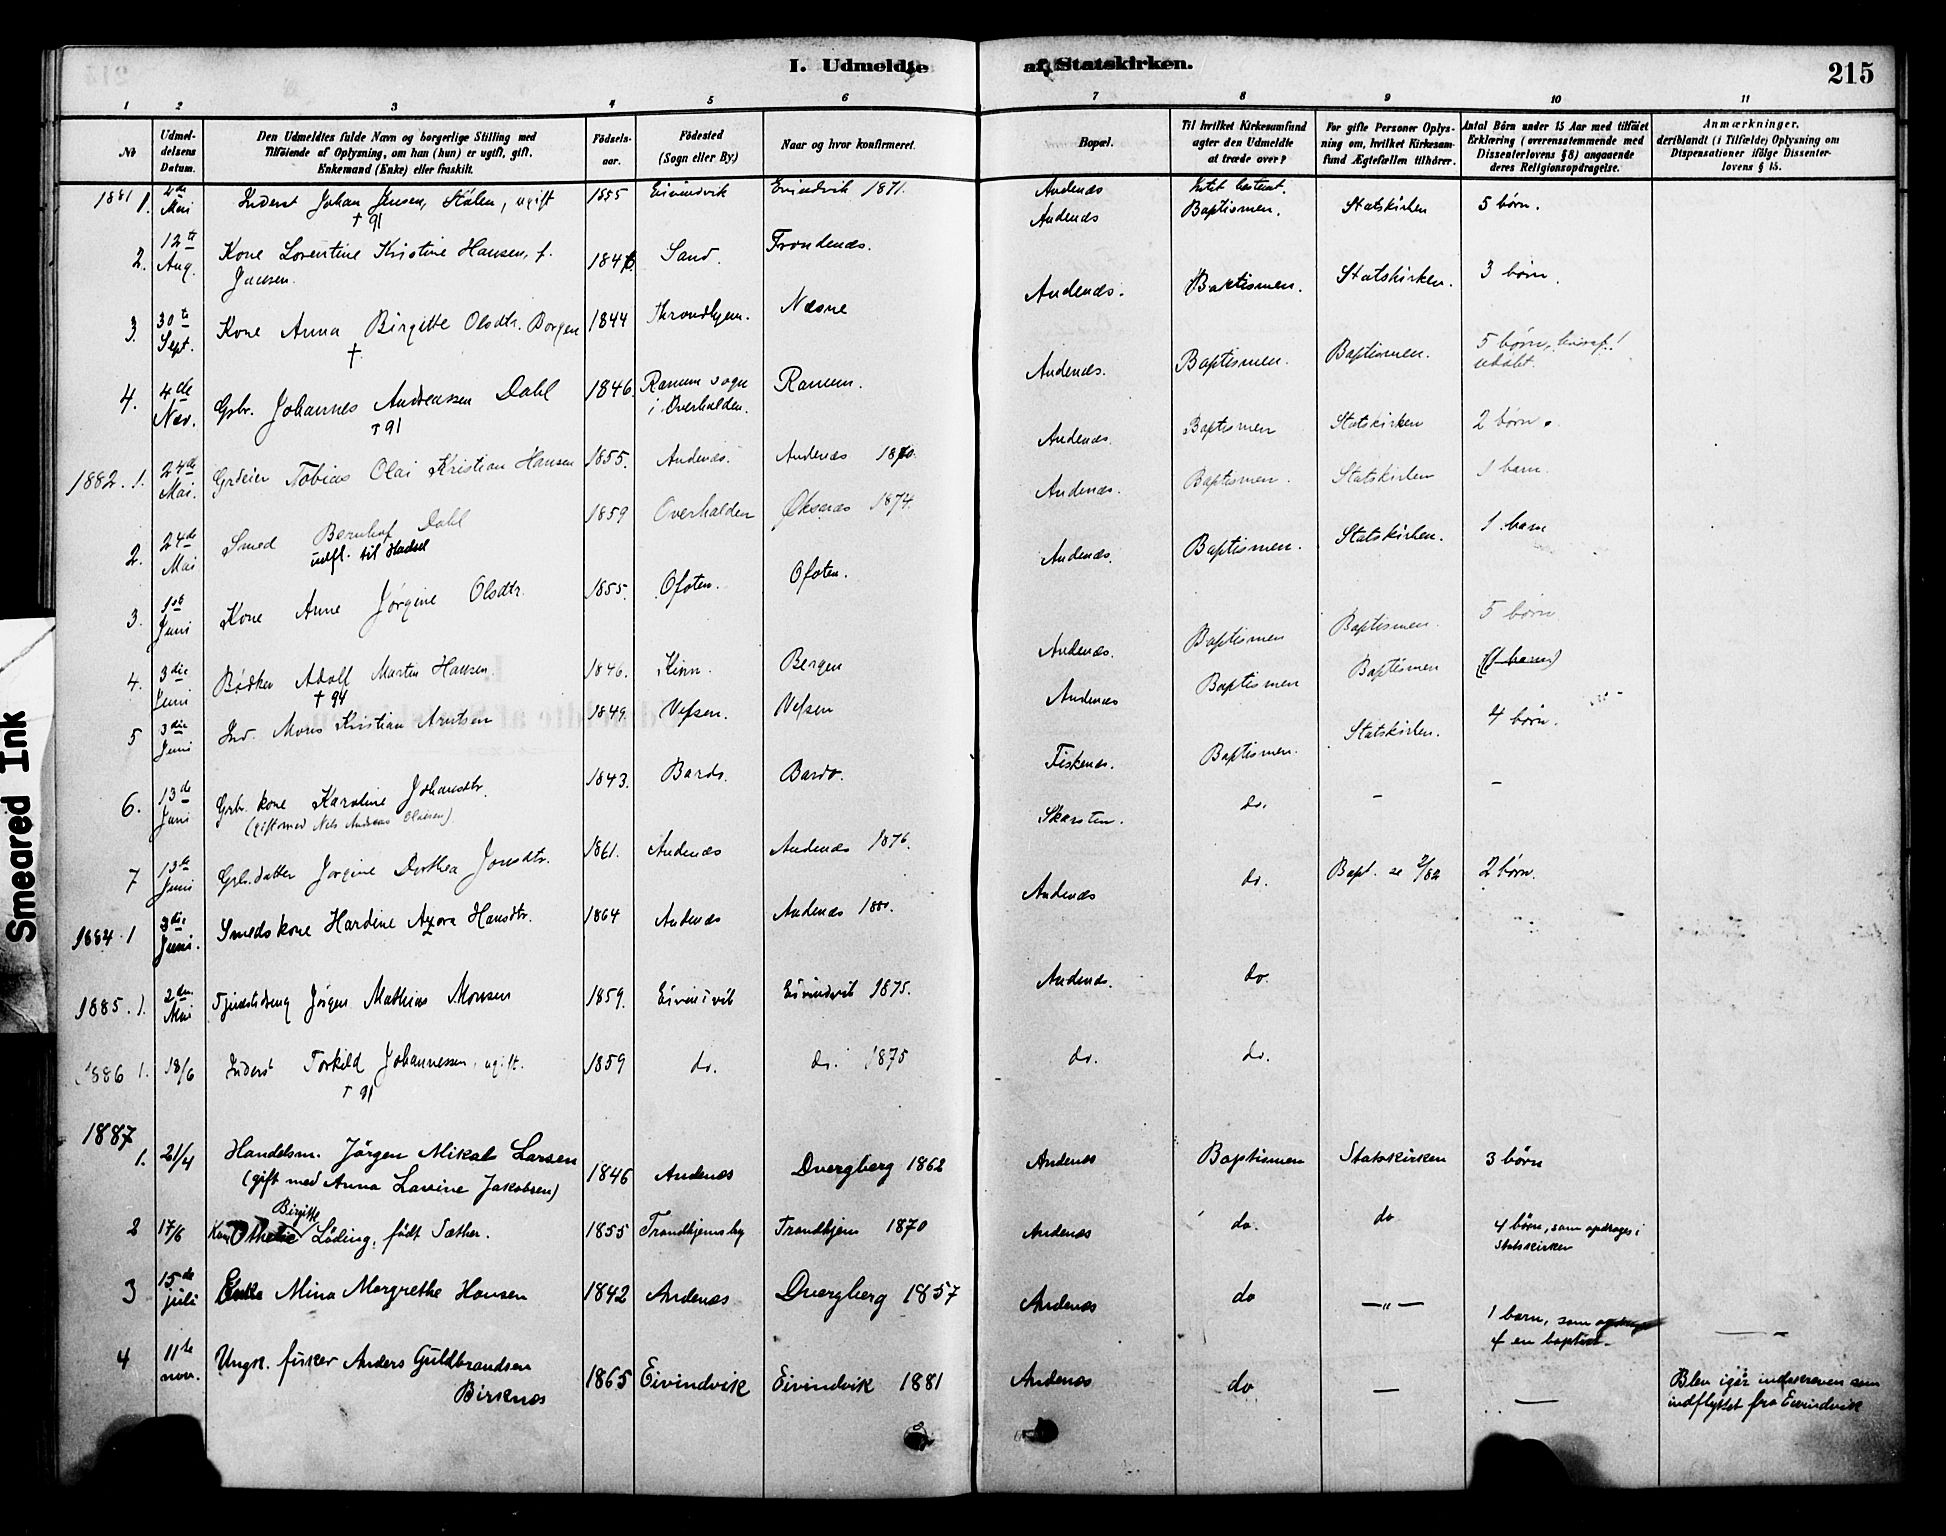 I. Udmeldte af Statskirken.
215
1 2 3 4 5 6 7 8 9 10 11
No
Udmel-
delsens
Datum.
Den Udmeldtes fulde Navn og borgerlige Stilling med
Tilføiende af Oplysning, om han (hun) er ugift, gift,
Enkemand (Enke) eller fraskilt.
Fødsels-
aar.
Fødested
(Sogn eller By)
Naar og hvor konfirmeret.
Bopæl.
Til hvilket Kirkesamfund
agter den Udmeldte
at træde over?
For gifte Personer Oplys-
ning om, hvilket Kirkesam-
fund Ægtefællen tilhører.
Antal Børn under 15 Aar med tilføiet
Erklæring (overensstemmende med
Dissenterlovens § 8) angaaende
deres Religionsopdragelse.
Anmærkninger,
deriblandt (i Tilfælde) Oplysning om
Dispensationer ifølge Dissenter-
lovens § 15.
1881 1. 4de Mai Inderst Johan Jensen, Stølen, ugift 1855 Eivindvik Eivindvik 1871. Andenæs Intet bestemt.
† 91
Andenæs Baptismen. Statskirken 5 børn.
2. 12te Aug. Kone Lorentine Kristine Hansen, f. 1846 Sand. Trondenæs.
Jensen.
Andenæs. Baptismen. Statskirken. 3 børn.
3. 30te Sept. Kone Anna Birgitte Olsdtr. Borgen 1844 Throndhjem. Næsne
†
Andenæs. Baptismen. Baptismen. 5 børn,
udøbt.
4. 4de Nov. Grbr. Johannes Andreassen Dahl 1846. Ranum sogn Ranum.
i Overhalden.
† 91
Andenæs. Baptismen Statskirken 2 børn.
1882. 1. 24de Mai. Grdeier Tobias Olai Kristian Hansen 1855. Andenæs. Andenæs 1870.
Andenæs. Baptismen. Statskirken 1 barn.
2. 24de Mai Smed Bernhof Dahl 1859 Overhalden Øksnæs 1874.
udfl. til Hadsel
Andenæs. Baptismen. Statskirken. 1 barn
3. 1ste Juni Kone Anne Jørgine Olsdtr. 1855. Ofoten. Ofoten.
Andenæs. Baptismen Baptismen. 5 børn
4. 3die Juni Bødker Adolf Martin Hansen. 1846. Kinn. Bergen
† 94
Andenæs Baptismen Baptismen (1 barn)
5 3die Juni Ind. Mons Kristian Arntsen 1849. Vefsen. Vefsen
Fiskenæs. Baptismen. Statskirken. 4 børn.
6. 13de Juni Grbr. kone Karoline Johansdtr. 1843. Bardo. Bardo.
(gift med Nels Andreas Olaisen)
Skarsten. do. - -
7 13de Juni Grbr.datter Jørgine Dorthea Jonsdtr. 1861. Andenæs Andenæs 1876.
Andenæs do. Bapt. 2/82 2 børn.
1884. 1 3die Juni. Smedskone Hardine Azora Hansdtr. 1864 Andenæs Andenæs 1880.
Andenæs. do.
1885. 1. 2den Mai Tjenestedreng Jørgen Mathias Monsen 1859. Eivindvik Eivindvik 1875.
1886 1. 18/6 Inderst Torkild Johannessen, ugift. 1859 do. do. 1875 do. do.
† 91
1887
1. 21/4 Handelsm. Jørgen Mikal Larsen 1846 Andenæs Dvergberg 1862 Andenæs Baptismen Statskirken 3 børn
(gift med Anna Lavine Jakobsen)
Birgitte
2 17/6 Kone Othelie Løding, født Sæther. 1855 Trondhjemsby Trondhjem 1870 Andenæs do. do 4 børn, som opdrages i
Statskirken
3 15de juli Enke Mina Margrethe Hansen 1842 Andenæs Dvergberg 1857 Andenæs do —"— 1 barn, som
f en baptist.
4 11te nov. Ungk. fisker Anders Guldbrandsen 1865 Eivindvik Eivindvik 1881 Andenæs do — — Blev igår indskreven som
Birknæs
indflyttet fra Eivindvik
Smeared Ink